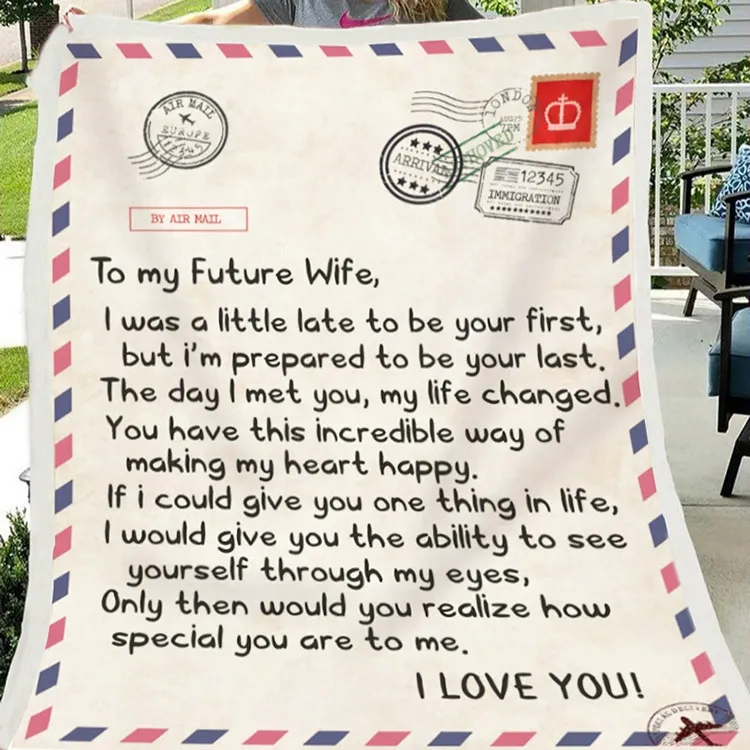 AIR MAIL
EUROPE
12345
LONDON
7PM
ARRIVAL
APPROVED
12345
IMMIGRATION
BY AIR MAIL
To my Future Wife,
I was a little late to be your first,
but i'm prepared to be your last.
The day I met you, my life changed.
You have this incredible way of
making my heart happy.
If i could give you one thing in life,
I would give you the ability to see
yourself through my eyes,
Only then would you realize how
special you are to me.
I LOVE YOU!